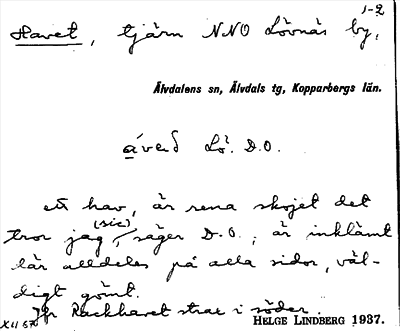 1-2
Havet, tjärn NNO Lövnäs by,
Älvdalens sn, Älvdals tg, Kopparbergs län.
áveđ Lö. D.O.
ett hav, är rena skojet det
tror jag (sic), säger D.O.; är inklämt
där alldeles på alla sidor, väl-
digt gömt.
Jfr Rackhavet strax i söder.
HELGE LINDBERG 1937.